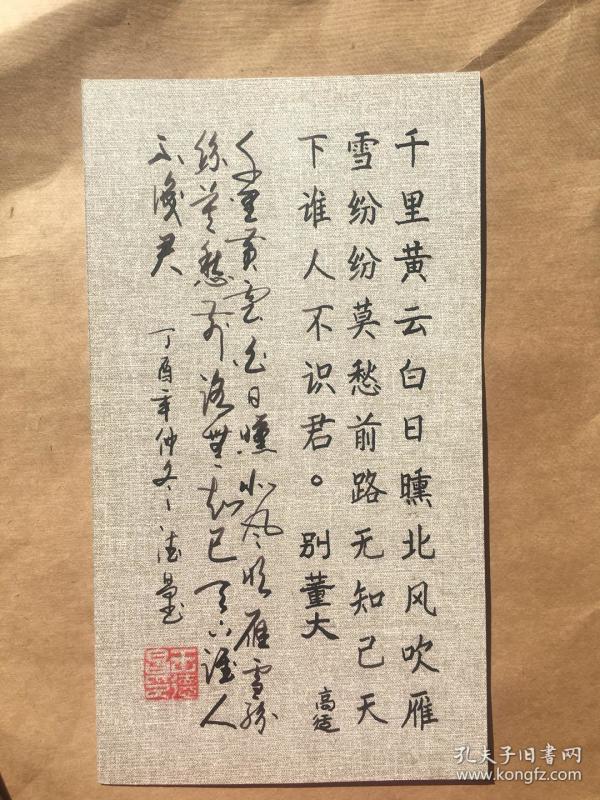 千里黄云白日曛北风吹雁
雪纷纷莫愁前路无知己天
下谁人不识君。别董大
高适
千里黄云白日曛北风吹雁雪纷
纷莫愁前路无知己天下谁人
不识君
丁酉年仲冬
孔夫子旧书网
www.kongfz.com